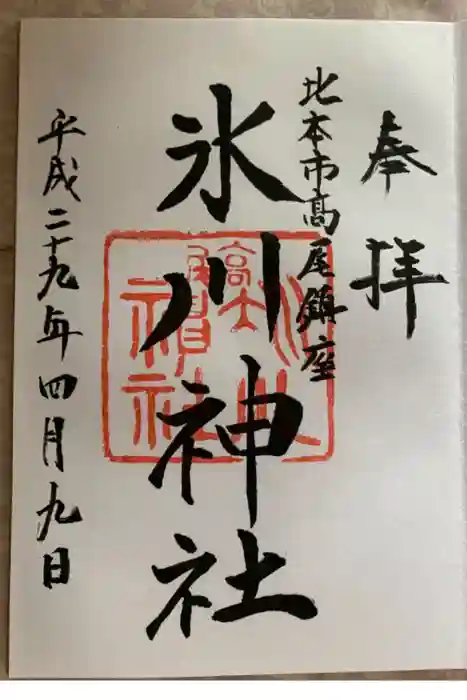 奉拝
北本市高尾鎮座
氷川神社
平成二十九年四月九日